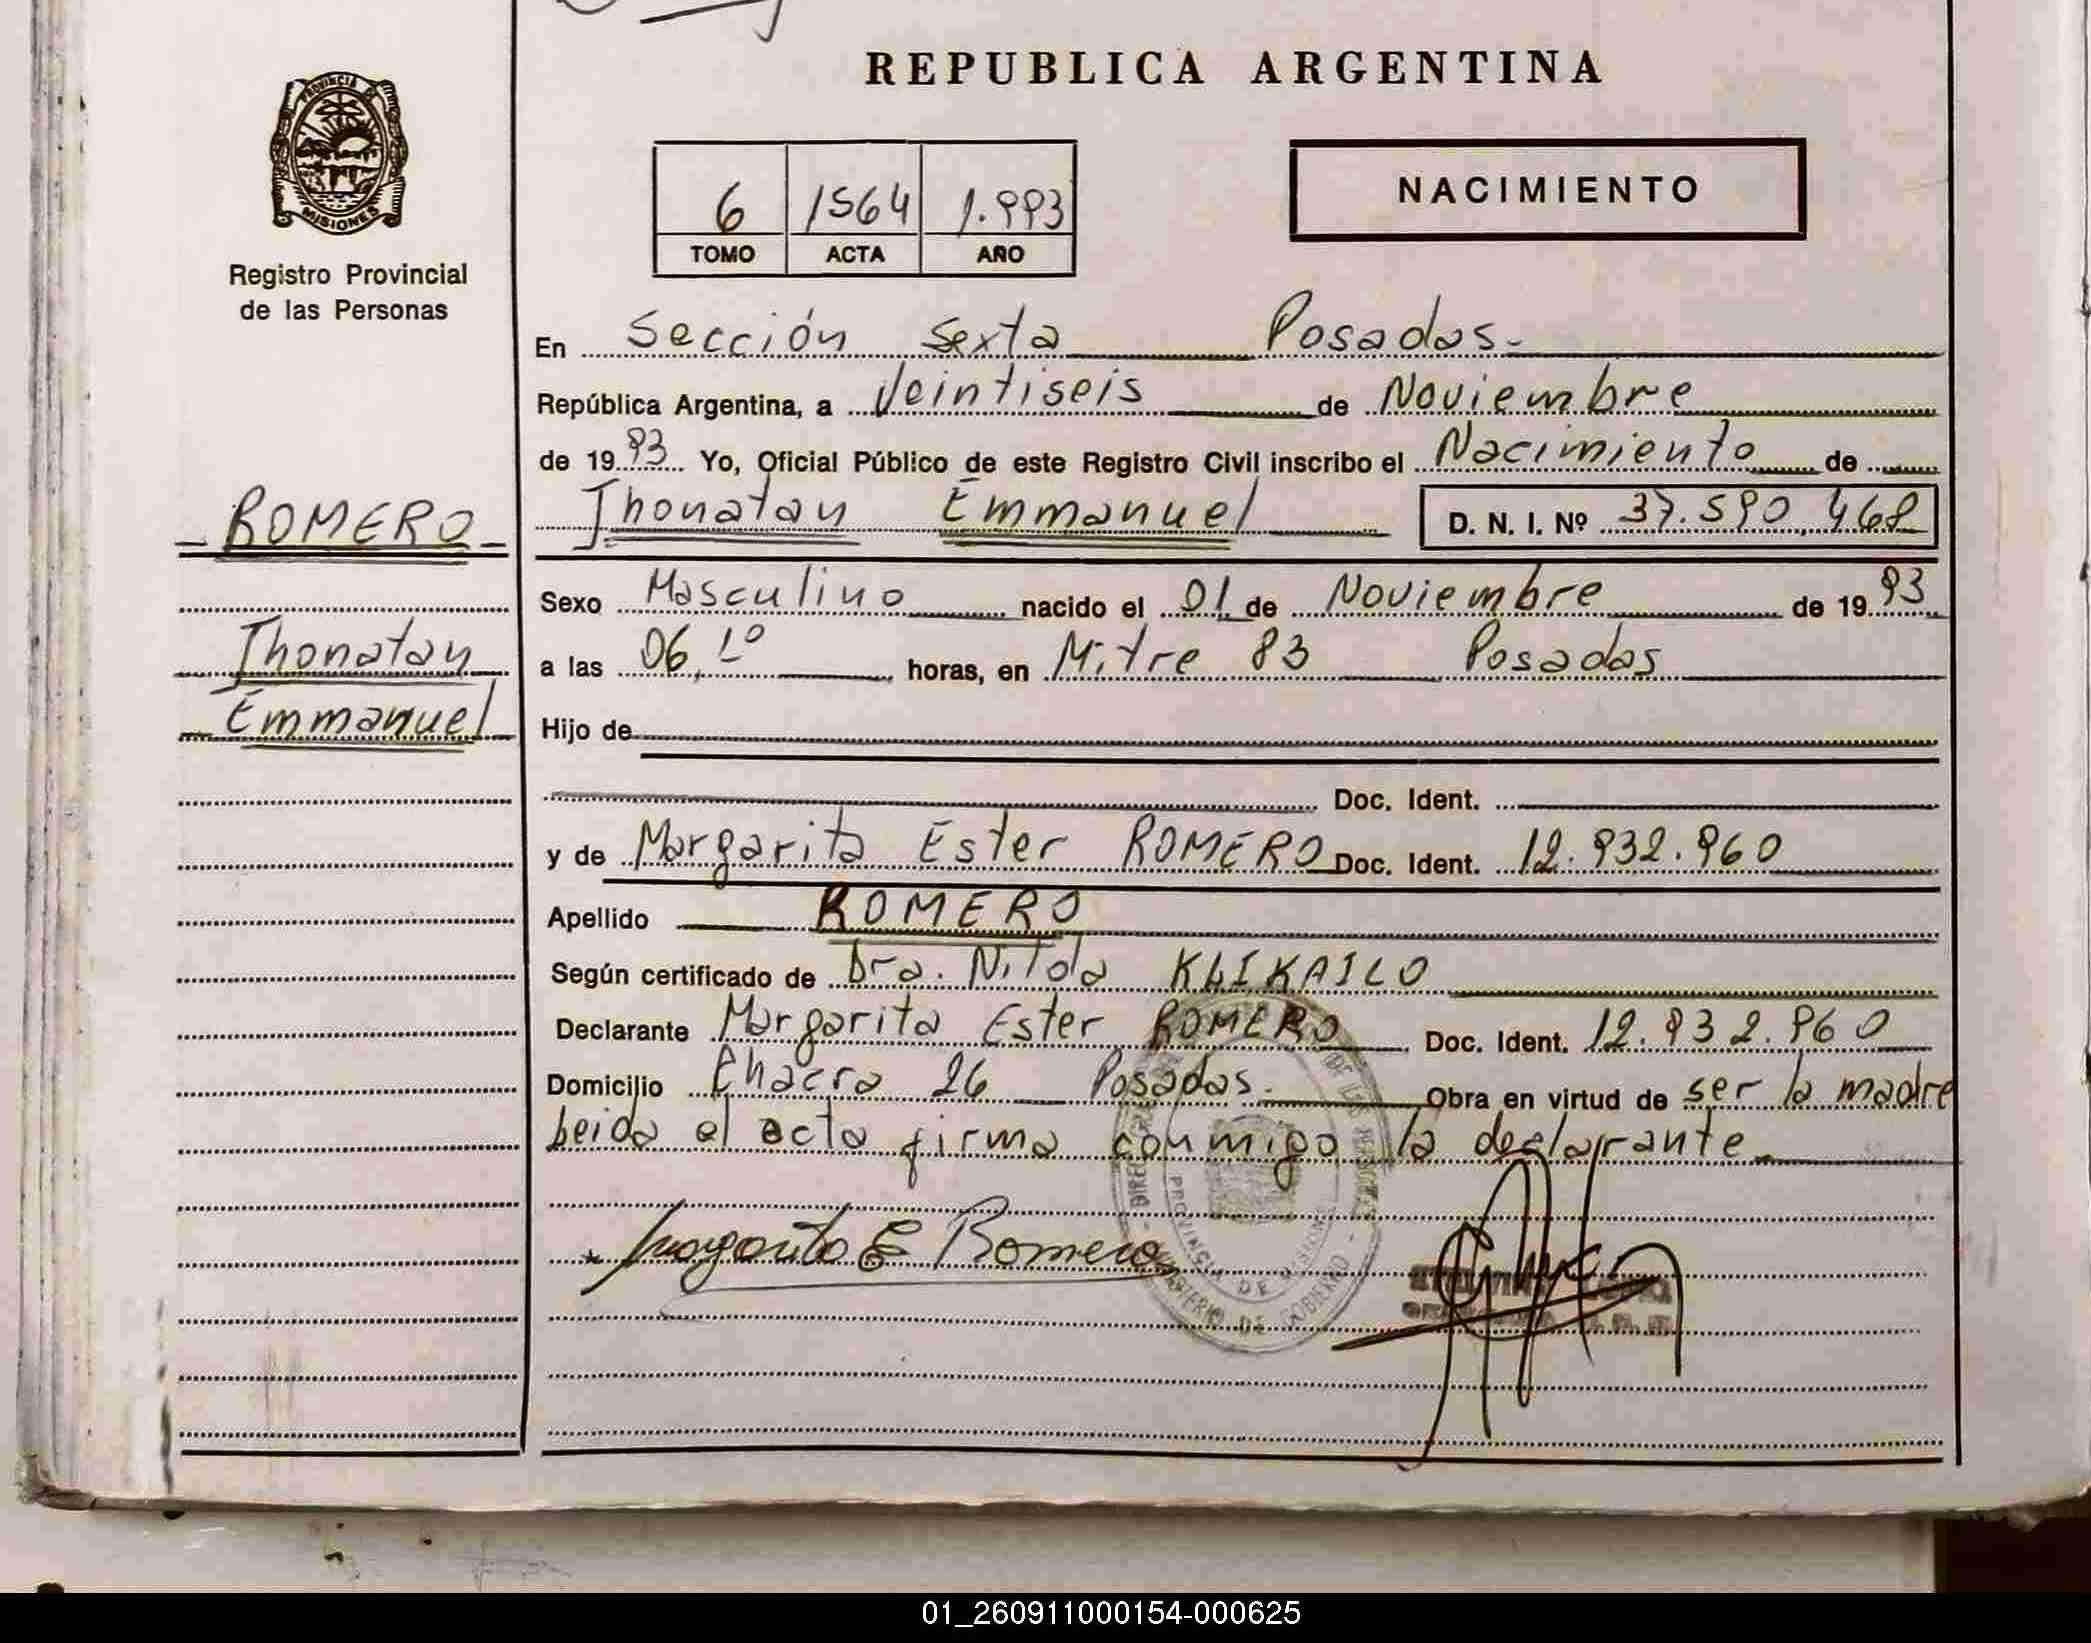 REPUBLICA ARGENTINA
PROVINCIA DE MISIONES
Registro Provincial
de las Personas
6 1564 1.993
TOMO ACTA AÑO
NACIMIENTO
En Sección Sexta Posadas.
República Argentina, a Veintiseis de Noviembre
de 1993 Yo, Oficial Público de este Registro Civil inscribo el Nacimiento de
ROMERO
Jhonatan Emmanuel D. N. I. Nº 37.590.468
Sexo Masculino nacido el 01 de Noviembre de 1993
Jhonatan
a las 06,10 horas, en Mitre 83 Posadas
Emmanuel
Hijo de
Doc. Ident.
y de Margarita Ester ROMERO Doc. Ident. 12.932.960
Apellido ROMERO
Según certificado de Dra. Nilda KLIKAILO
Declarante Margarita Ester ROMERO Doc. Ident. 12.932.960
Domicilio Chacra 26 Posadas. Obra en virtud de ser la madre
Leida el acta firma conmigo la declarante
Margarita E Romero
PROVINCIA DE MISIONES
MINISTERIO DE GOBIERNO
01_260911000154-000625